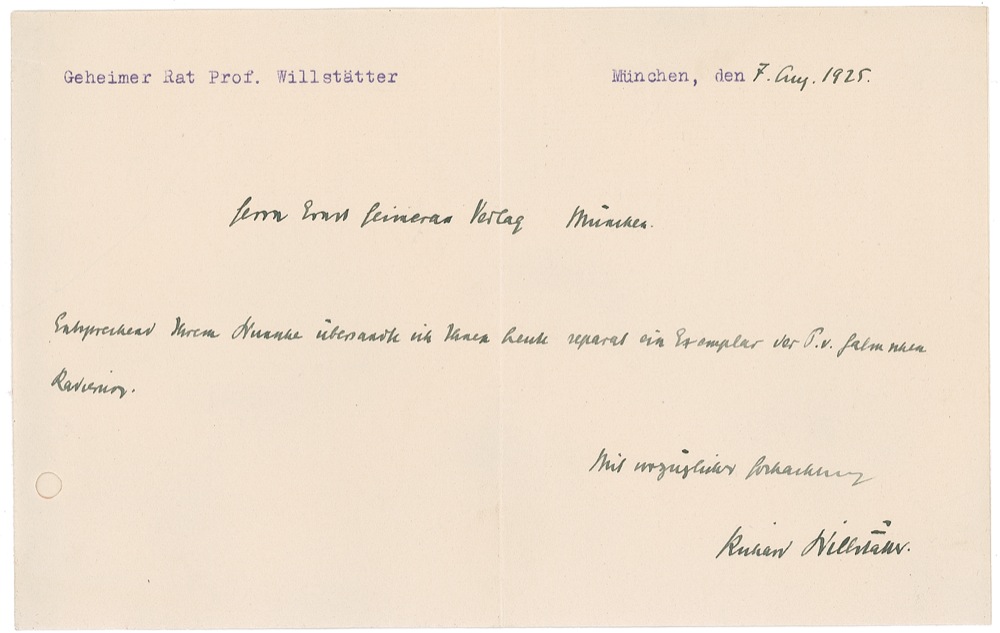 Geheimer Rat Prof. Willstätter
München, den 7. Aug. 1925.
Herrn Ernst Heimeran Verlag München.
Entsprechend Ihrem Wunsche übersandte ich Ihnen heute separat ein Exemplar der P. v. Halm'schen
Radierung.
Mit vorzüglicher Hochachtung
Richard Willstätter.